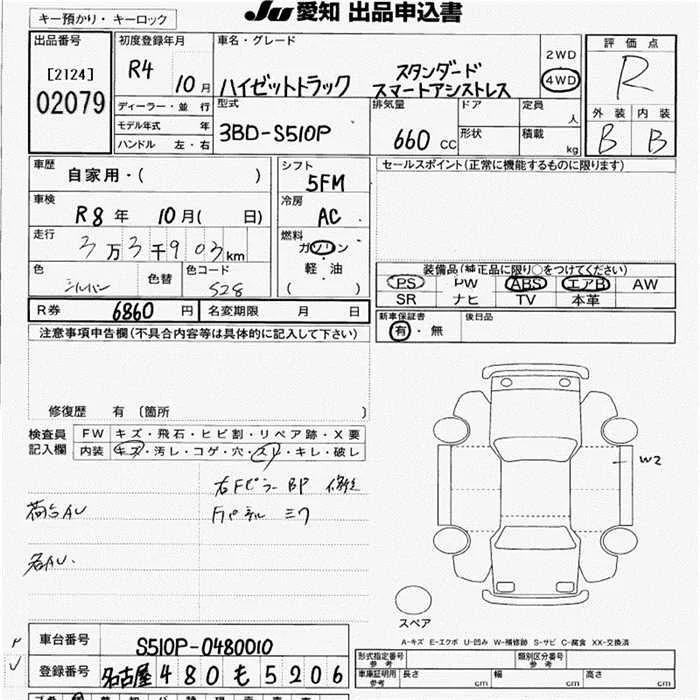 JU 愛知 出品申込書
キー預かり・キーロック
出品番号
[2124]
02079
初度登録年月
R4 10月
ディーラー・並 行
モデル年式 年
ハンドル 左・右
車名・グレード
ハイゼットトラック スタンダード
スマートアシストレス
2WD
4WD
型式
3BD-S510P
排気量
660 CC
ドア
形状
定員
人
積載
kg
評価点
R
外装 内装
B B
車歴
自家用・( )
車検
R8年 10月( 日)
走行
3万3千903km
色
シルバー
色替
色コード
S28
シフト
5FM
冷房
AC
燃料
ガソリン
・
軽・油
( )
セールスポイント(正常に機能するものに限ります)
装備品(純正品に限り○をつけてください)
PS PW ABS エアB AW
SR ナビ TV 本革
新車保証書
有・無
後日品
R券 6860 円 名変期限 月 日
注意事項申告欄(不具合内容等は具体的に記入して下さい)
修復歴 有 〔箇所 〕
検査員
記入欄
FW キズ・飛石・ヒビ割・リペア跡・X要
内装 キズ・汚レ・コゲ・穴・スレ・キレ・破レ
右Fピラー BP 修正
荷台AU
W2
スペア
A-キズ E-エクボ U-凹み W-補修跡 S-サビ C-腐食 XX-交換済
車台番号 S510P-0480010
登録番号 名古屋 480 も 5206
形式指定番号
参考
類別区分番号
参考
車庫証明用
参考
長さ cm 幅 cm 高さ cm